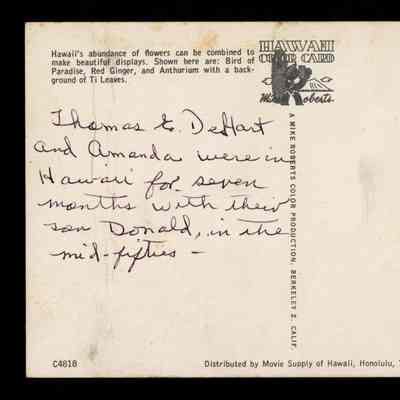 Hawaii's abundance of flowers can be combined to
make beautiful displays. Shown here are: Bird of
Paradise, Red Ginger, and Anthurium with a back-
ground of Ti Leaves.
HAWAII
COLOR CARD
Mike Roberts
A MIKE ROBERTS COLOR PRODUCTION, BERKELEY 2, CALIF.
Thomas E. DeHart
and Amanda were in
Hawaii for seven
months with their
son Donald, in the
mid-fifties -
C4818
Distributed by Movie Supply of Hawaii, Honolulu,